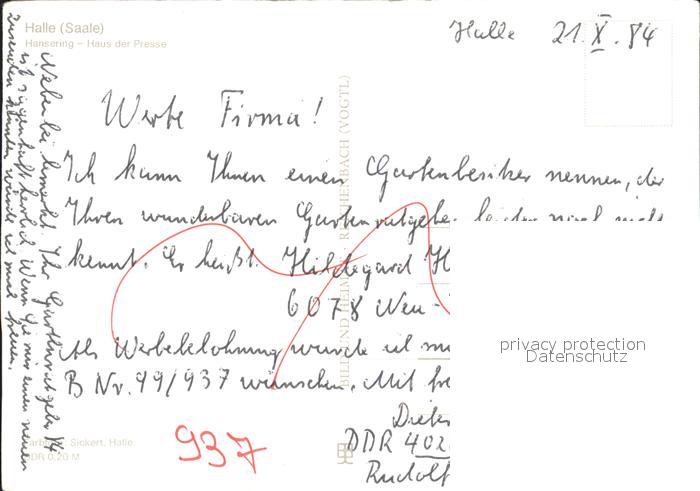 Halle (Saale)
Hansering – Haus der Presse
Halle 21.X.84
Werte Firma!
Ich kann Ihnen einen Gartenbesitzer nennen, der
Ihren wunderbaren Gartenratgeber leider noch nicht
kennt. Er heißt Hildegard H
6078 Neu-
Als Werbebelohnung würde ich
B Nr. 99/937 wünschen. Mit
DDR 402
Rudolf
937
Nebenbei bemerkt: Ihr Gartenratgeber 84
ist sagenhaft herrlich. Wenn Sie mir einen neuen
zusenden könnten würde ich mich freuen.
BILD UND HEIMAT REICHENBACH (VOGTL)
Sickert, Halle
DDR 0,20 M
privacy protection
Datenschutz